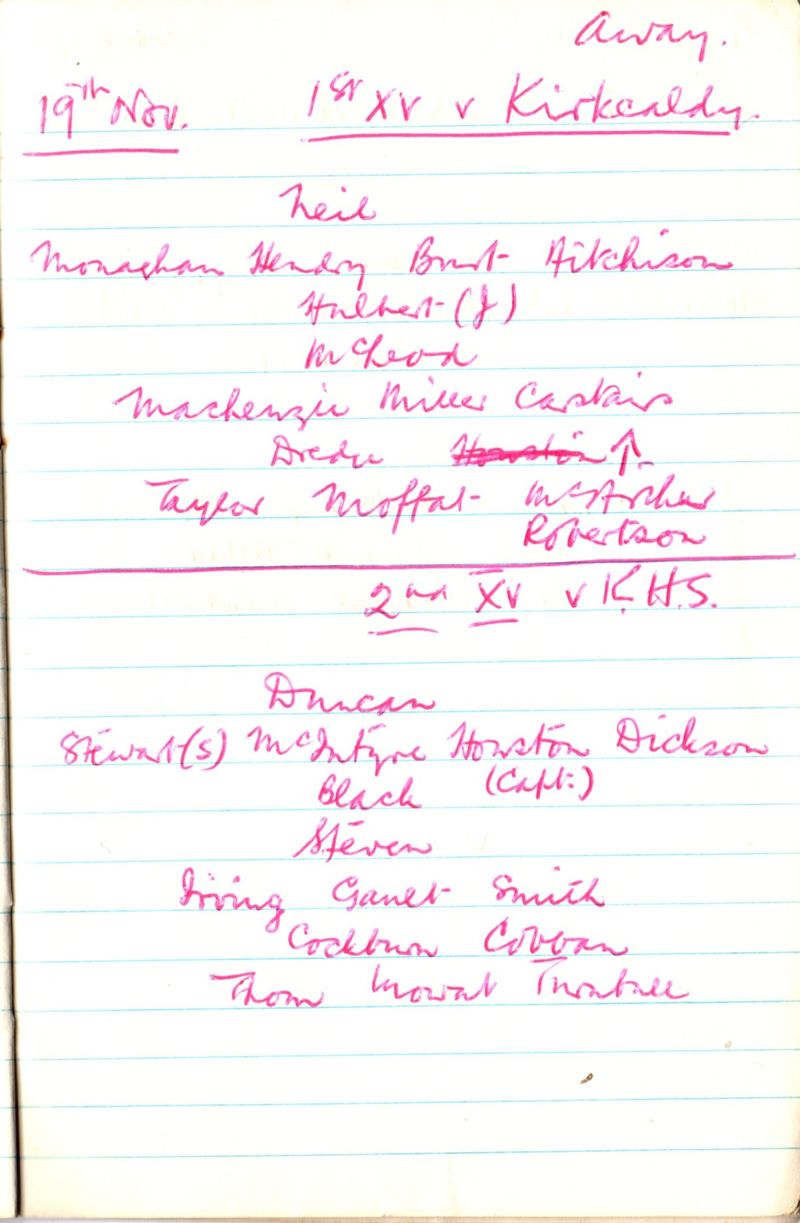 Away.
19th Nov. 1st XV v Kirkcaldy.
Neil
Monaghan Hendry Burt Aitchison
Hulbert (J)
McLeod
Mackenzie Miller Carstairs
Dredge Houston ↑
Taylor Moffat McArthur
Robertson
2nd XV v K.H.S.
Duncan
Stewart(S) McIntyre Houston Dickson
Black (Capt.)
Steven
Irving Gault Smith
Cockburn Cobban
Thom Mowat Turnbull